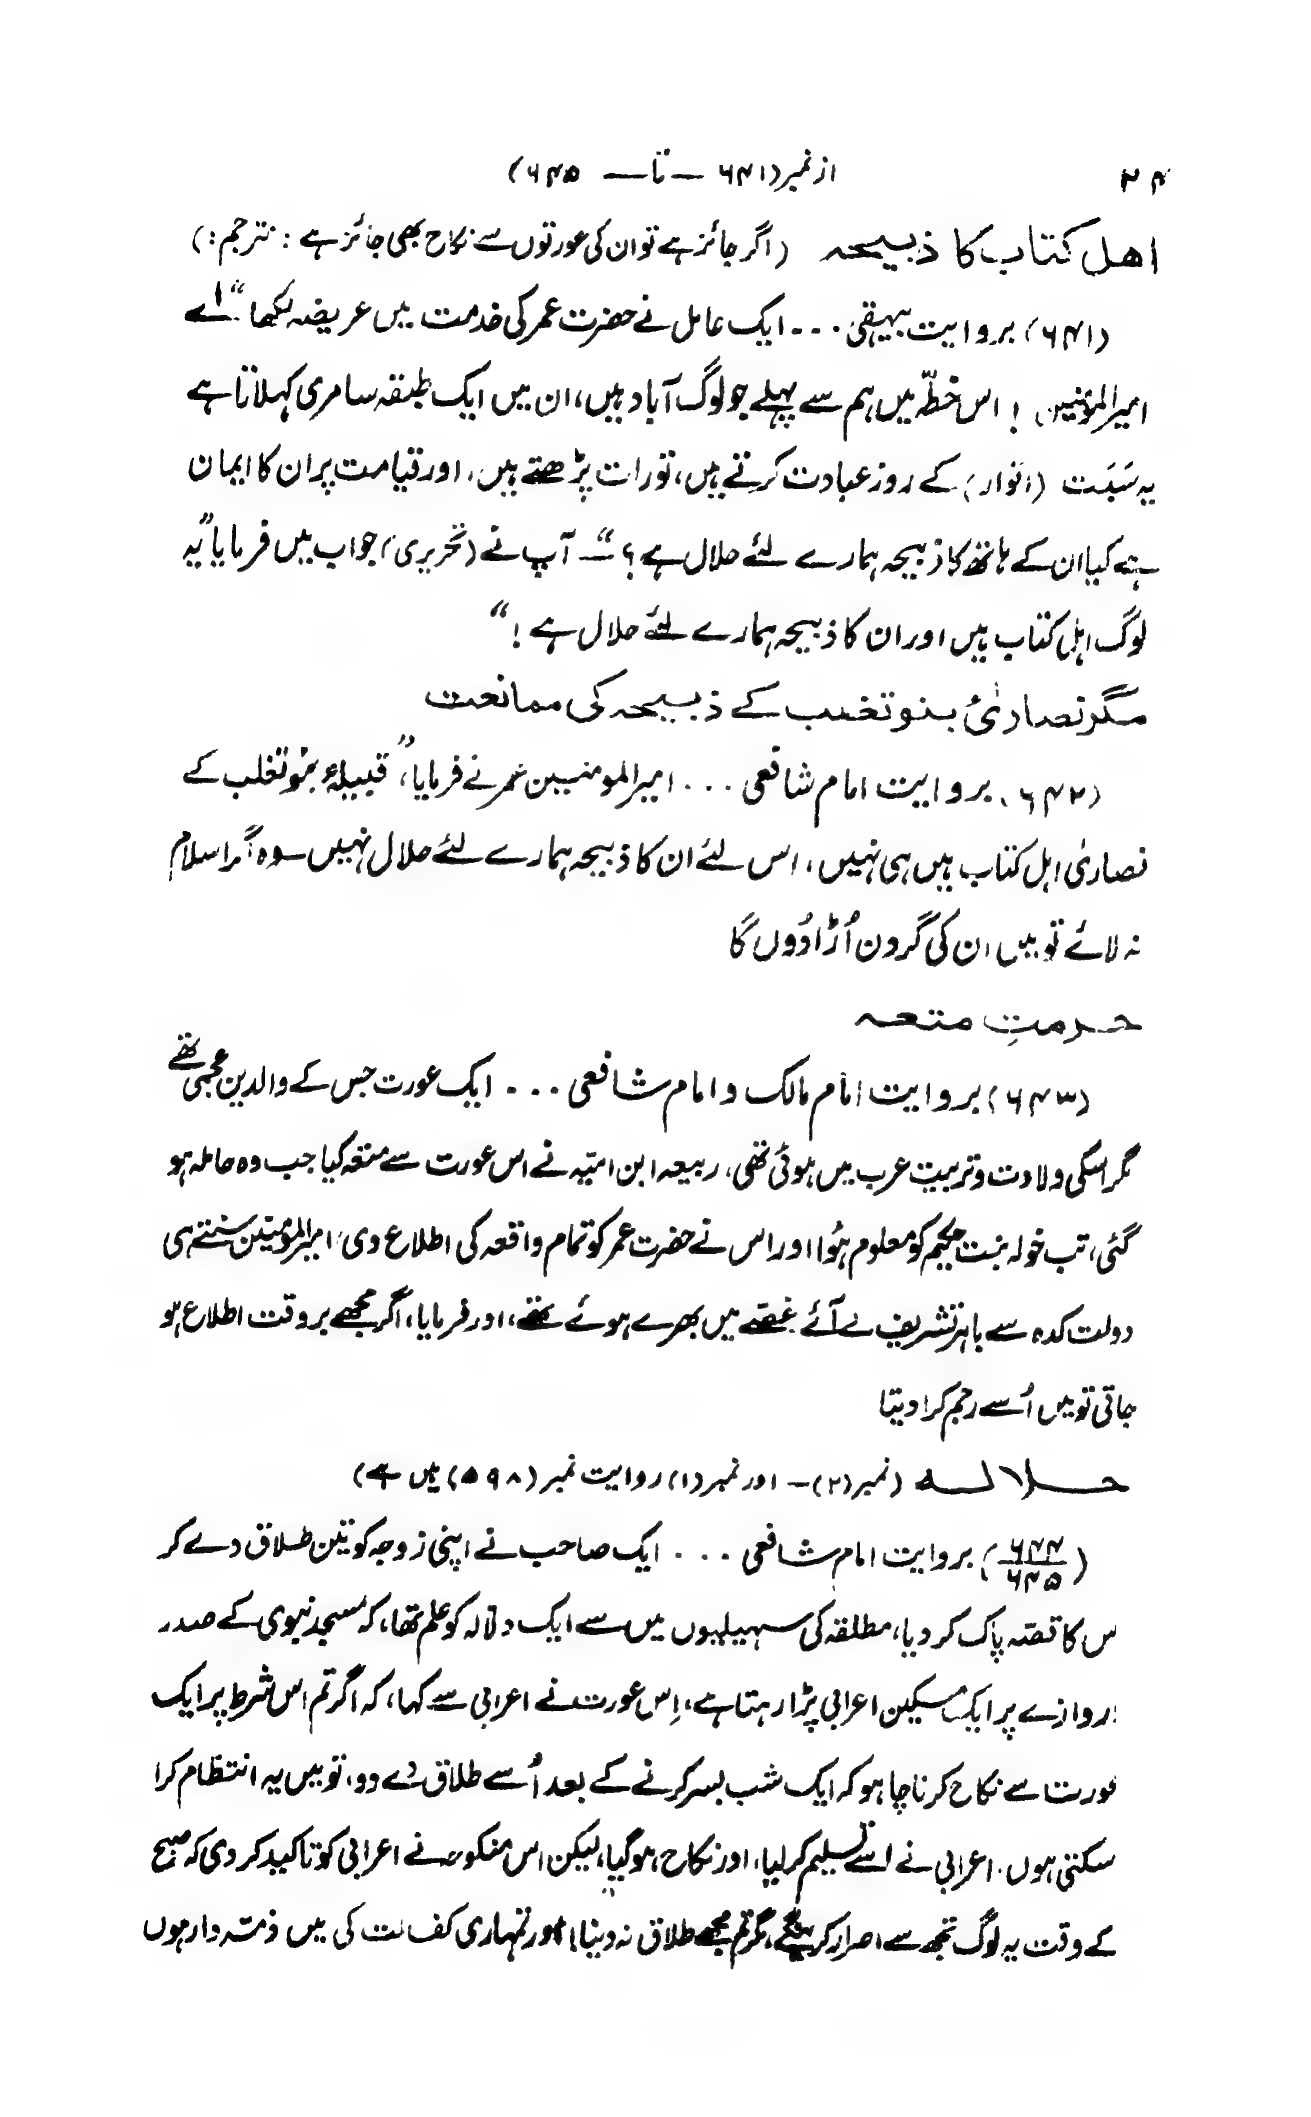 ۲۴ از نمبر (۶۴۱ — تا — ۶۴۵)
اهل کتاب کا ذبیحہ (اگر جائز ہے تو ان کی عورتوں سے نکاح بھی جائز ہے : مترجم :)
(۶۴۱) بروایت بیہقی ... ایک عامل نے حضرت عمر کی خدمت میں عریضہ لکھا “اے
امیرالمؤمنین ! اس خطّہ میں ہم سے پہلے جو لوگ آباد ہیں، ان میں ایک طبقہ سامری کہلاتا ہے
یہ سَبَت (اتوار) کے روز عبادت کرتے ہیں، تورات پڑھتے ہیں، اور قیامت پر ان کا ایمان
ہے کیا ان کے ہاتھ کا ذبیحہ ہمارے لئے حلال ہے ؟“ — آپ نے (تحریری) جواب میں فرمایا ”یہ
لوگ اہل کتاب ہیں اور ان کا ذبیحہ ہمارے لئے حلال ہے !“
مگر نصاریٰ بنو تغلب کے ذبیحہ کی ممانعت
(۶۴۲) بروایت امام شافعی ... امیرالمومنین عمر نے فرمایا، ”قبیلۂ بنو تغلب کے
نصاریٰ اہل کتاب ہیں ہی نہیں، اس لئے ان کا ذبیحہ ہمارے لئے حلال نہیں — وہ اگر اسلام
نہ لائے تو میں ان کی گردن اُڑا دُوں گا
حرمتِ متعہ
(۶۴۳) بروایت امام مالک و امام شافعی ... ایک عورت جس کے والدین عجمی تھے
مگر اسکی ولادت و تربیت عرب میں ہوئی تھی، ربیعہ ابن امیّہ نے اس عورت سے متعہ کیا جب وہ حاملہ ہو
گئی، تب خولہ بنت حکیم کو معلوم ہُوا اور اس نے حضرت عمر کو تمام واقعہ کی اطلاع دی، امیرالمؤمنین سنتے ہی
دولت کدہ سے باہر تشریف لے آئے غصّے میں بھرے ہوئے تھے، اور فرمایا، اگر مجھے بر وقت اطلاع ہو
جاتی تو میں اُسے رجم کرا دیتا
حلالہ (نمبر (۲) — اور نمبر (۱) روایت نمبر (۵۹۸) میں ہے)
(۶۴۴/۶۴۵) بروایت امام شافعی ... ایک صاحب نے اپنی زوجہ کو تین طلاق دے کر
س کا قصّہ پاک کر دیا، مطلقہ کی سہیلیوں میں سے ایک دلّالہ کو علم تھا، کہ مسجد نبوی کے صدر
دروازے پر ایک مسکین اعرابی پڑا رہتا ہے، اِس عورت نے اعرابی سے کہا، کہ اگر تم اس شرط پر ایک
عورت سے نکاح کرنا چاہو کہ ایک شب بسر کرنے کے بعد اُسے طلاق دے دو، تو میں یہ انتظام کرا
سکتی ہوں۔ اعرابی نے اسے تسلیم کر لیا، اور نکاح ہو گیا، لیکن اس منکوحہ نے اعرابی کو تاکید کر دی کہ صبح
کے وقت یہ لوگ تجھ سے اصرار کریں گے، مگر تم مجھے طلاق نہ دینا! اور تمہاری کفالت کی میں ذمّہ دار ہوں